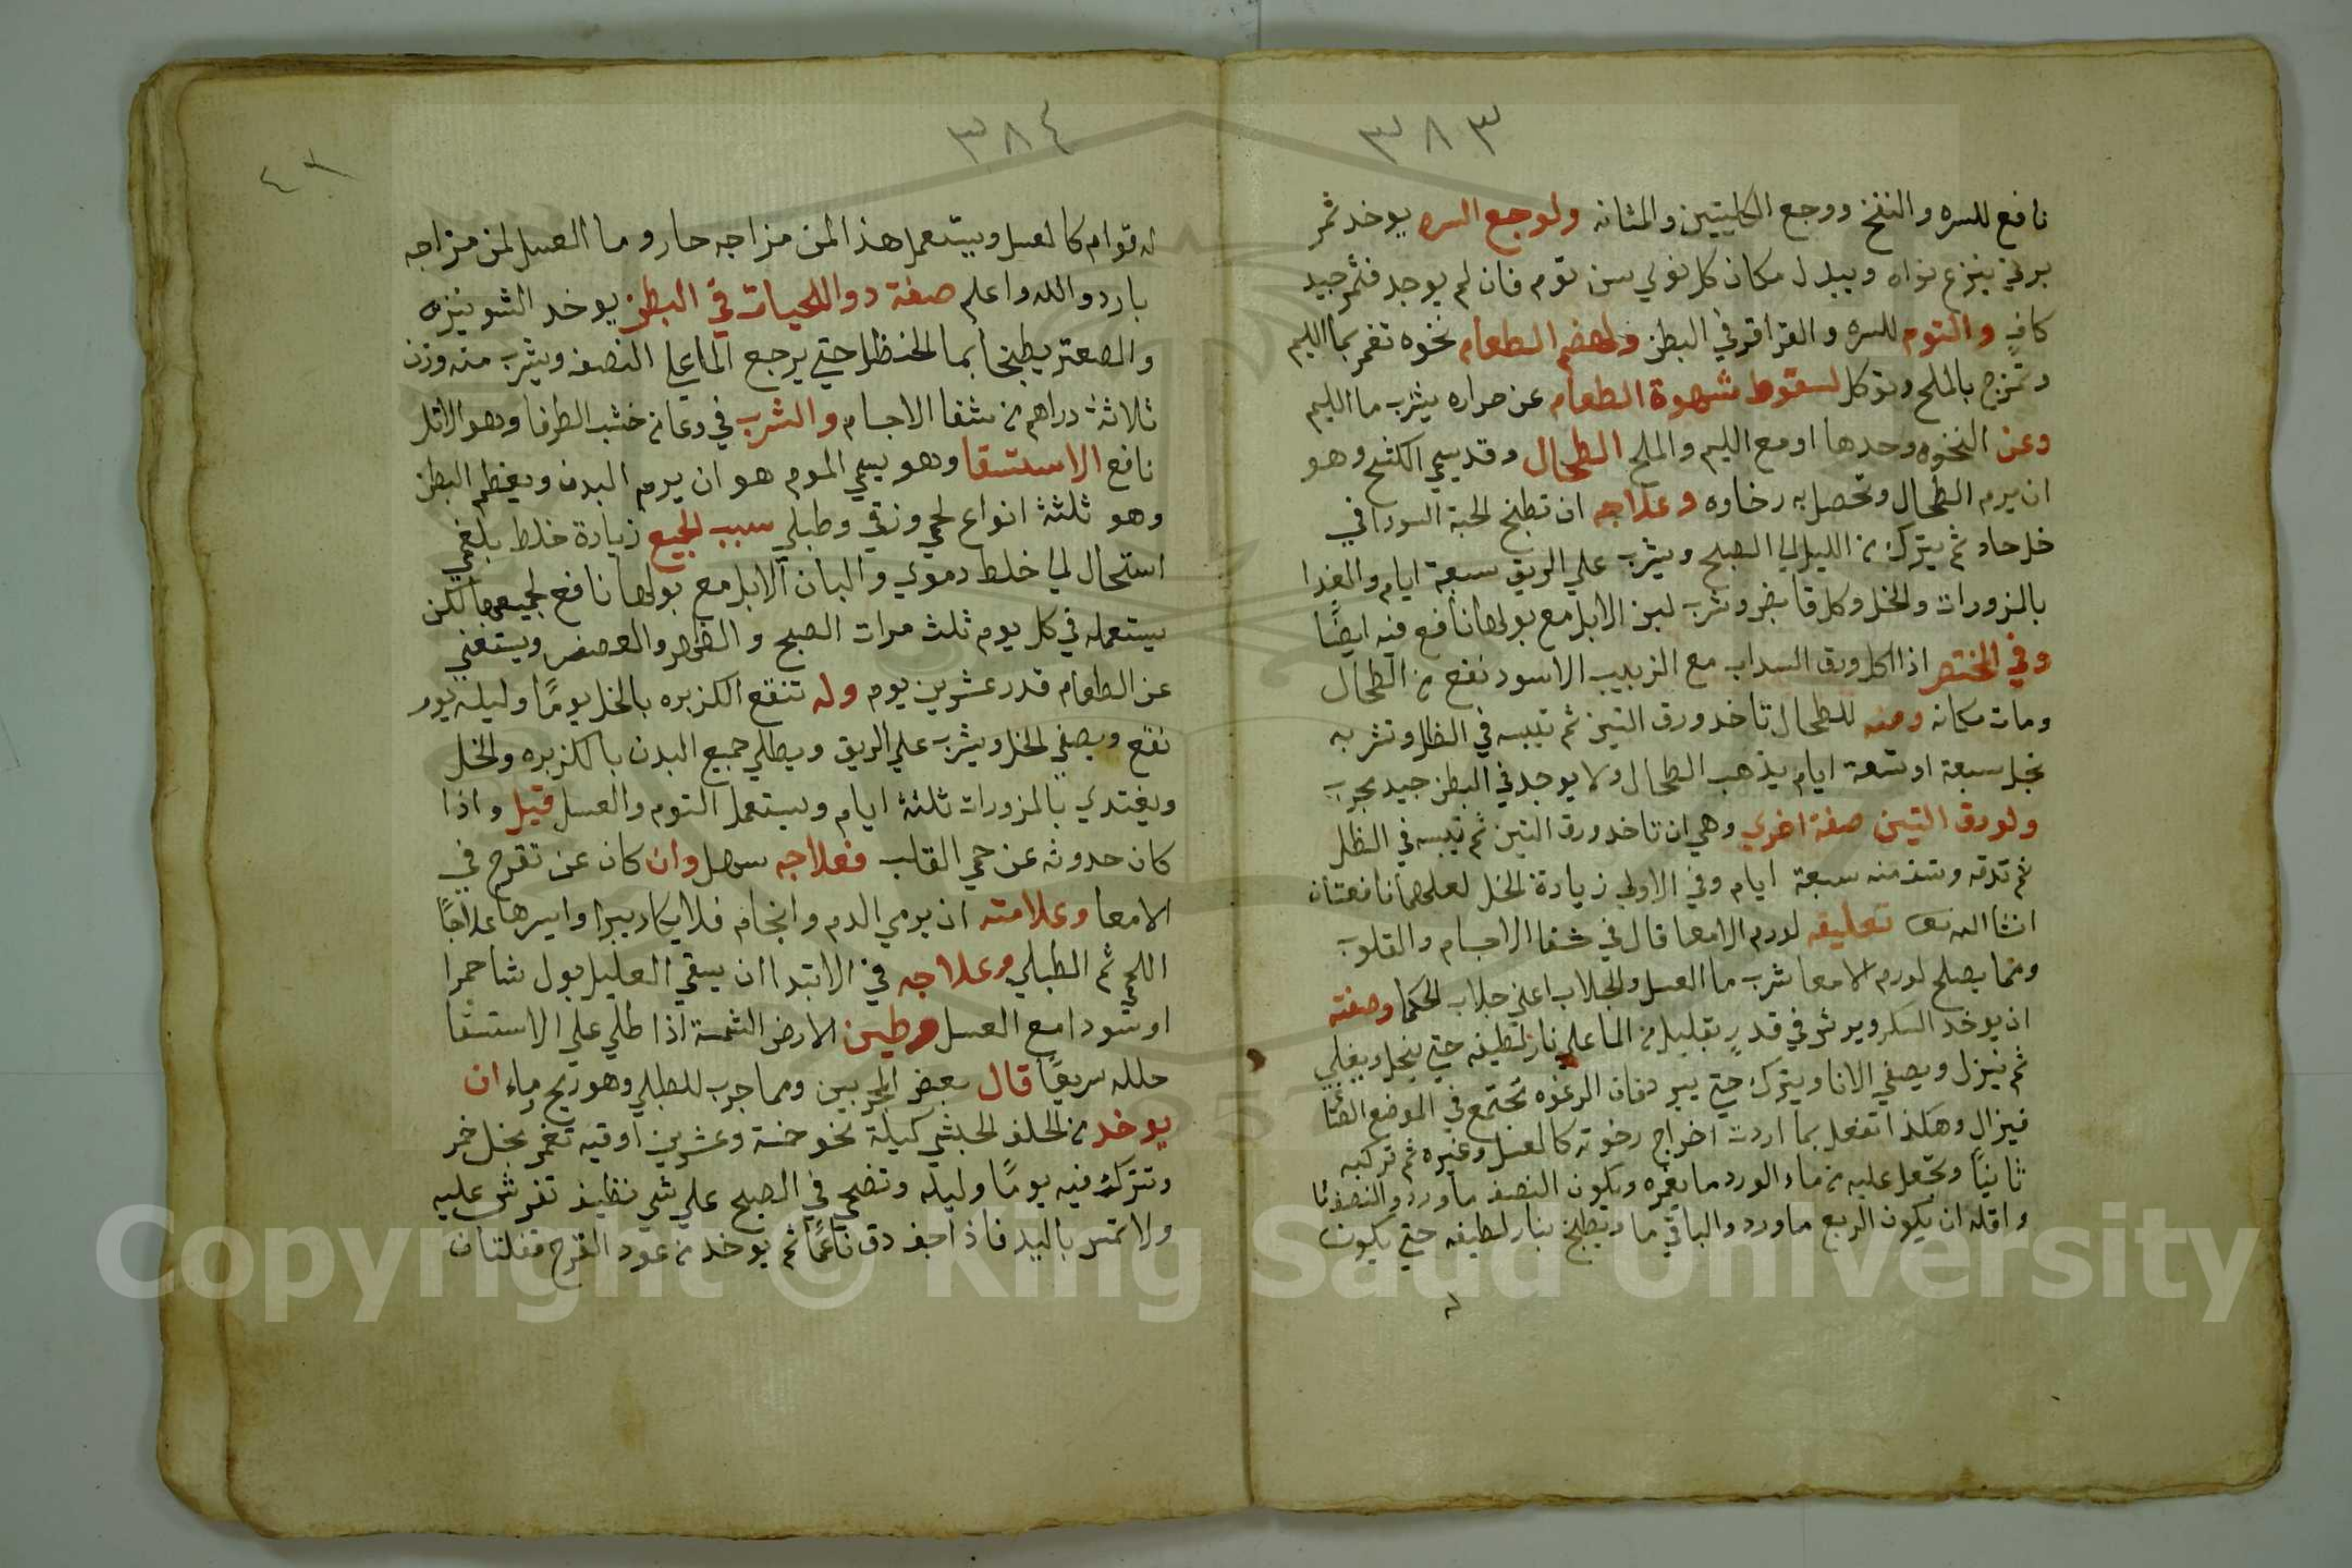 ٣٨٣
نافع للسره والنفخ ووجع الكليتين والمثانه ولوجع السره يوخد تمر
برني ينزع نواه ويبدل مكان كل نوي سن توم فان لم يوجد فتمر جيد
كافٍ والتوم للسره والقراقر في البطن ولهضم الطعام نخوه تغمر بما الليم
وتمزج بالملح وتوكل لسقوط شهوة الطعام عن حراره يشرب ما الليم
وعن النخوه وحدها او مع الليم والملح الطحال وقد يسمي الكشح وهو
ان يرم الطحال وتحصل به رخاوه وعلاجه ان تطبخ الحبة السودا في
خل حاد ثم يترك من الليل الي الصبح ويشرب علي الريق سبعة ايام والغدا
بالمزورات والخل وكل قابض وشرب لبن الابل مع بولها نافع فيه ايضًا
وفي المختصر اذا اكل ورق السداب مع الزبيب الاسود نفع من الطحال
ومات مكانه ومنه للطحال تاخد ورق التين ثم تيبسه في الظل وتشربه
بخل سبعة او تسعة ايام يذهب الطحال ولا يوجد في البطن جيد مجرب
ولورق التين صفة اخري وهي ان تاخد ورق التين ثم تيبسه في الظل
ثم تدقه وتسف منه سبعة ايام وفي الاولي زيادة الخل لعلهما نافعتان
انشا الله تعا تعليقه لورم الامعا قال في شفا الاجسام والقلوب
ومما يصلح لورم الامعا شرب ما العسل والجلاب اعني جلاب الحكما وصفته
ان يوخد السكر ويرش في قدرٍ بقليل من الما علي نار لطيفه حتي ينحل ويغلي
ثم ينزل ويصفي الانا ويترك حتي يبرد فان الرغوه تجتمع في الموضع
فيزال وهكذا تفعل بما اردت اخراج رغوته كالعسل وغيره ثم تركبه
ثانيًا وتجعل عليه من ماء الورد ما يغمره ويكون النصف ماورد والنصف ما
واقله ان يكون الربع ماورد والباقي ما ويطبخ بنار لطيفه حتي يكون
له
٣٨٤
له قوام كالعسل ويستعمل هذا لمن مزاجه حار وما العسل لمن مزاجه
بارد والله واعلم صفة دوا للحيات في البطن يوخد الشونيز
والصعتر يطبخا بما الحنظل حتي يرجع الما علي النصف ويشرب منه وزن
ثلاثة دراهم من شفا الاجسام والشرب في وعا من خشب الطرفا وهو الاثل
نافع الاستسقا وهو يسمي الموم هو ان يرم البدن ويعظم البطن
وهو ثلثة انواع لحمي وزقي وطبلي سبب الجميع زيادة خلط بلغمي
استحال الي خلط دموي والبان الابل مع بولها نافع لجميعها لكن
يستعمله في كل يوم ثلث مرات الصبح والظهر والعصر ويستغني
عن الطعام قدر عشرين يوم وله تنقع الكزبره بالخل يومًا وليله يوم
نقع ويصفي الخل ويشرب علي الريق ويطلي جميع البدن بالكزبره والخل
ويغتدي بالمزورات ثلثة ايام ويستعمل التوم والعسل قيل واذا
كان حدوثه عن حمي القلب فعلاجه سهل وان كان عن تقرح في
الامعا وعلامته ان يرمي الدم وانجام فلا يكاد يبرا وايسرها علاجًا
اللحمي ثم الطبلي وعلاجه في الابتدا ان يسقي العليل بول شا حمرا
او سودا مع العسل وطين الارض الشمسة اذا طلي علي الاستسقا
حلله سريعًا قال بعض المجربين ومما جرب للطبلي وهو ريح وماء ان
يوخد من الحلف الحبشي كيلة نحو خمسة وعشرين اوقيه تغمر بخل خمر
وتترك فيه يومًا وليله وتضحي في الصبح علي شي نظيف تفرش عليه
ولا تمس باليد فاذا جف دق ناعمًا ثم يوخد من عود القرح قفلتان